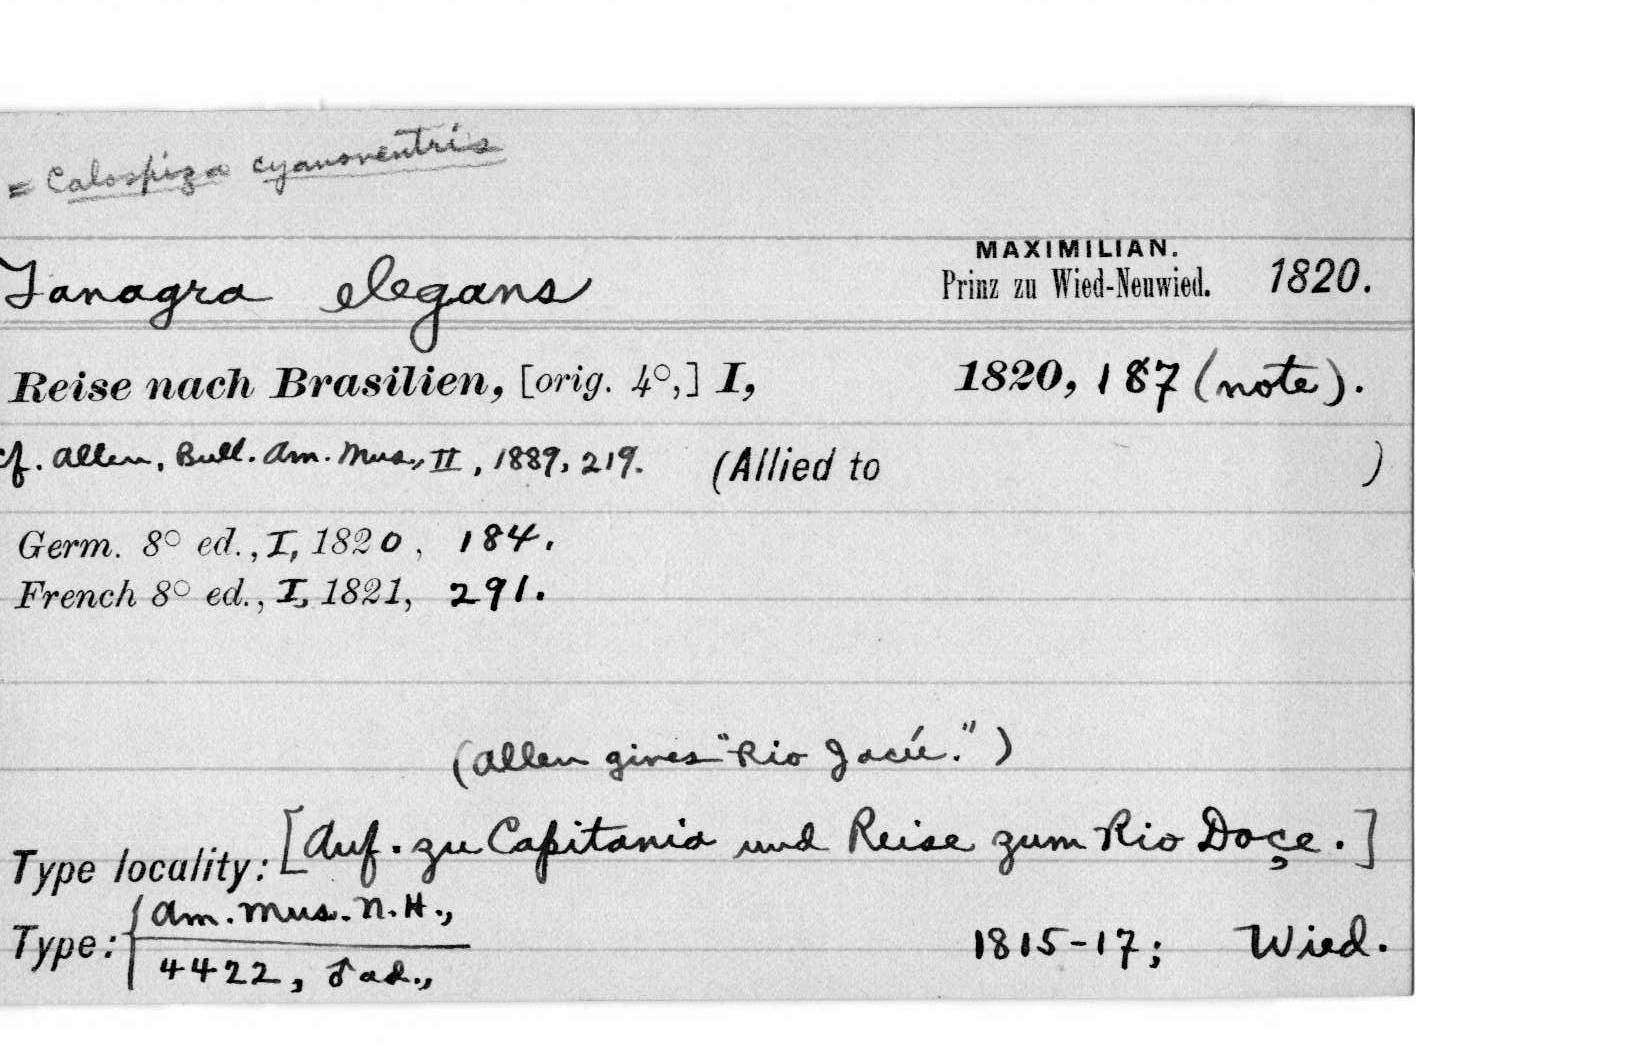 = Calospiza cyanoventris
Tanagra elegans MAXIMILIAN. Prinz zu Wied-Neuwied. 1820.
Reise nach Brasilien, [orig. 4°,] I, 1820, 187 (note).
cf. Allen, Bull. Am. Mus., II, 1889, 219. (Allied to )
Germ. 8° ed., I, 1820, 184.
French 8° ed., I, 1821, 291.
(Allen gives "Rio Jacú.")
Type locality: [Auf. zu Capitania und Reise zum Rio Doçe.]
Type: { Am. Mus. N. H.,
4422, ♂ ad., 1815-17; Wied.